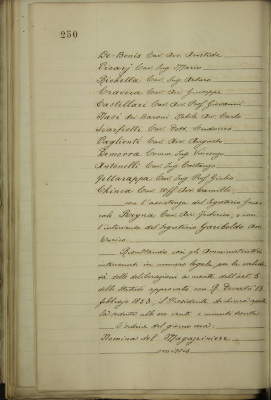 250
De-Bonis Cav. Avv. Aristide
Cav. Ing. Mario
Richetta Cav. Ing. Arturo
Cravera Cav. Avv. Giuseppe
Castellari Cav. Avv. Prof. Giovanni
dei Baroni Avv. Carlo
Scarfiotti Cav. Dott. Ludovico
Paglienti Cav. Avv. Augusto
Remorra Comm. Ing. Vincenzo
Antonelli Cav. Ing. Costanzo
Cav. Ing. Prof. Giulio
Chiesa Cav. Uff. Avv. Camillo
con l'assistenza del Segretario Gene-
rale Cav. Avv. Federico, e con
l'intervento del Segretario Garibaldi Avv.
Enrico.
Risultando con gli Amministratori
intervenuti in numero legale per la validi-
tà delle deliberazioni a mente dell'art. 5
dello Statuto approvato con R. Decreto 13
febbrajo 1853, il Presidente dichiara aperta
la seduta alle ore venti e minuti trenta.
L'ordine del giorno era:
Nomina del Magazziniere
omissis